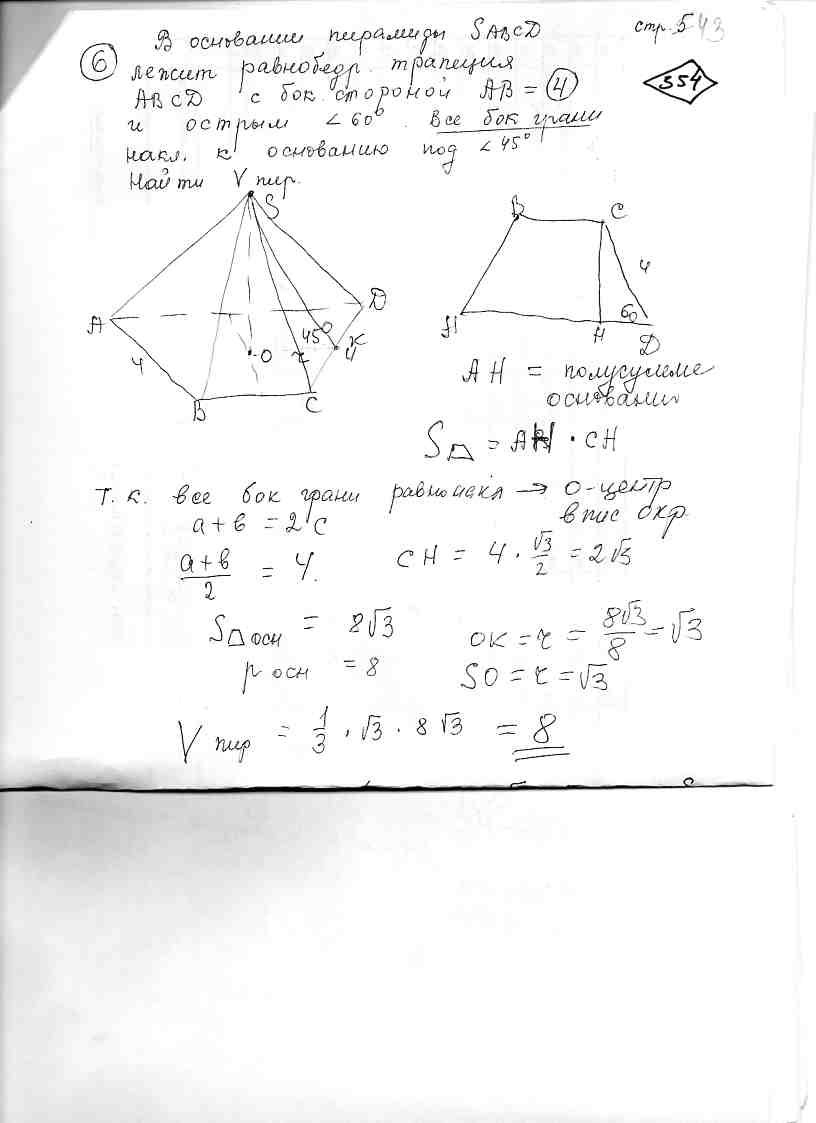 В основании пирамиды SABCD
стр. 543
6
лежит равнобедр. трапеция
354
ABCD с бок. стороной AB = 4
и острым ∠60°. Все бок грани
накл. к основанию под ∠45°
Найти V пир.
S
A
D
45°
K
4
O
r
4
B
C
B
C
4
60
A
H
D
AH = полусумме
основании
S = AH · CH
т. к. все бок грани равнонакл → O-центр
впис окр.
a + b = 2c
a+b/2 = 4.
CH = 4 · √3/2 = 2√3
S осн = 8√3
OK = r = 8√3/8 = √3
p осн = 8
SO = r = √3
V пир = 1/3 · √3 · 8√3 = 8